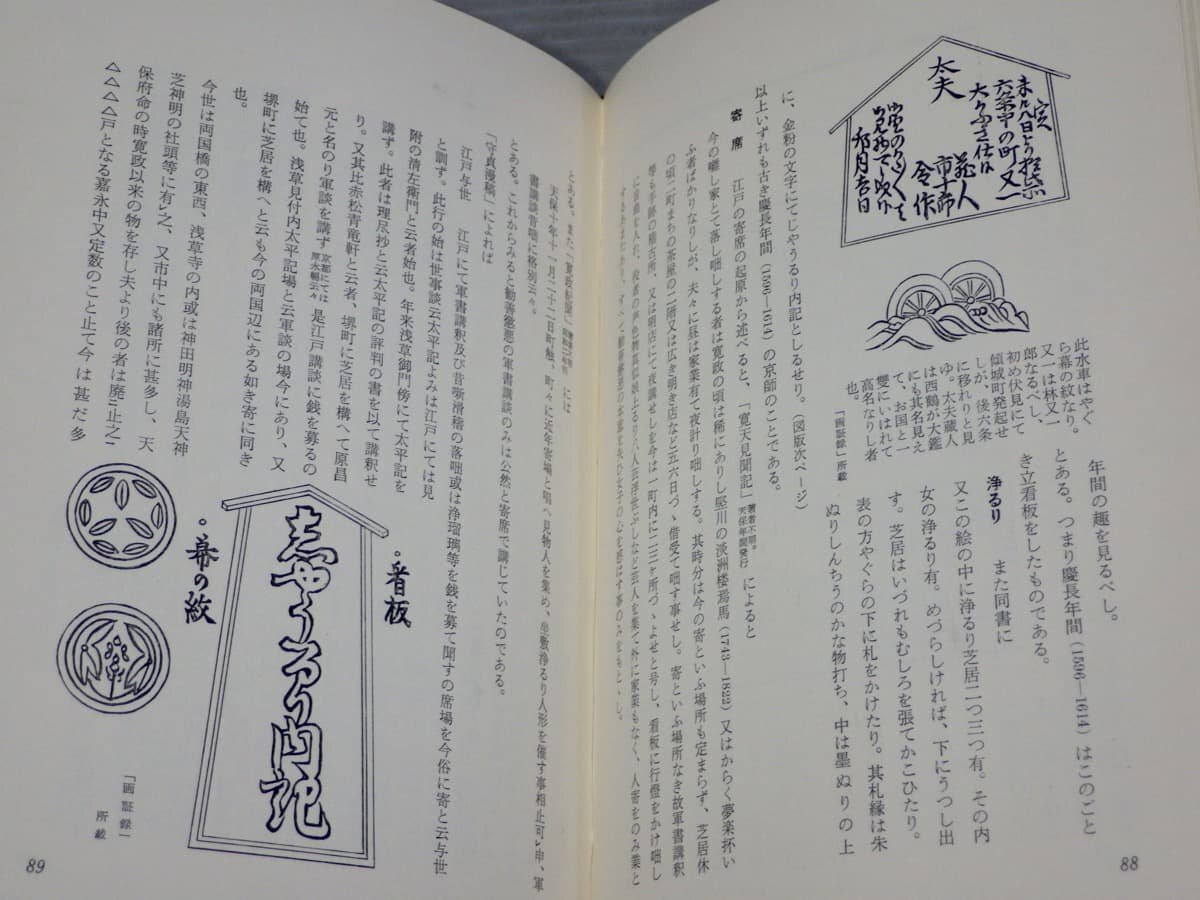 年間の趣を見るべし。
とある。つまり慶長年間(1596―1614)はこのごと
き立看板をしたものである。
浄るり　また同書に
又この絵の中に浄るり芝居二つ三つ有。その内
女の浄るり有。めづらしければ、下にうつし出
す。芝居はいづれもむしろを張てかこひたり。
表の方やぐらの下に札をかけたり。其札縁は朱
ぬりしんちうのかな物打ち、中は墨ぬりの上
太夫
此水車はやぐ
ら幕の紋なり。
又一は林又一
郎なるべし、
初め伏見にて
傾城町発起せ
しが、後六条
に移れりと見
ゆ。太夫蔵人
は西鶴が大鑑
にも其名見え
て、お国と一
雙にいはれて
高名なりし者
也。
「画証録」所載
に、金粉の文字にてじやうるり内記としるせり。(図版次ページ)
以上いずれも古き慶長年間(1596―1614)の京師のことである。
寄席　江戸の寄席の起原から述べると、「寛天見聞記」著者不明。天保年間発行によると
今の噺し家とて落し咄しする者は寛政の頃は稀にありし竪川の談洲楼焉馬(1743―1822)又はからく夢楽抔い
ふ者ばかりなりしが、夫々に昼は家業有て夜計り咄しする。其時分は今の寄といふ場所も定まらず、芝居休
の頃二町まちの茶屋の二階又は広き明き店など五六日づゝ借受て咄す事せし。寄といふ場所なき故軍書講釈
等も手跡の稽古所、又は明店にて夜講せしを今は一町内に二三ヶ所づゝよせと号し、看板に行燈をかけ咄し
88
とある。また「寛政紀聞」には
天保十年十一月二十二日町触、町々に近年寄場と唱へ見物人を集め、坐敷浄るり人形を催す事相止可レ申、軍
書講談昔咄に格別云々。
とある。これからみると勧善懲悪の軍書講談のみは公然と寄席で講じていたのである。
「守貞漫稿」によれば
江戸与世　江戸にて軍書講釈及び昔噺滑稽の落咄或は浄瑠璃等を銭を募て聞すの席場を今俗に寄と云与世
と訓ず。此行の始は世事談云太平記よみは江戸にては見
附の清左衛門と云者始也。年来浅草御門傍にて太平記を
講ず。此者は理尽抄と云太平記の評判の書を以て講釈せ
り。又其比赤松青竜軒と云者、堺町に芝居を構へて原昌
元と名のり軍談を講ず京都にては原永惕云々是江戸講談に銭を募るの
始て也。浅草見付内太平記場と云軍談の場今にあり、又
堺町に芝居を構へと云も今の両国辺にある如き寄に同き
也。
今世は両国橋の東西、浅草寺の内或は神田明神湯島天神
芝神明の社頭等に有レ之、又市中にも諸所に甚多し、天
保府命の時寛政以来の物を存し夫より後の者は廃ニ止之一
△△△△戸となる嘉永中又定数のこと止て今は甚だ多
看板
志やうるり内記
幕の紋
「画証録」
所載
89